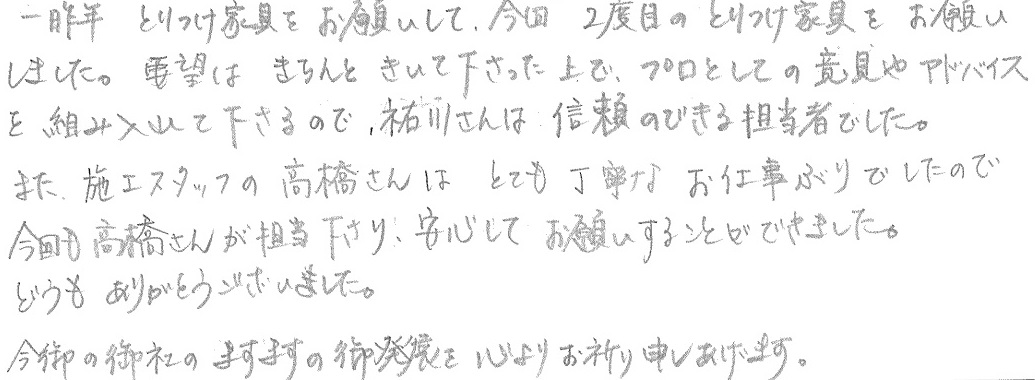 一昨年 とりつけ家具を お願いして、今回 2度目の とりつけ家具を お願い
しました。要望は きちんと きいて下さった上で、プロとしての意見や アドバイス
を 組み入れて下さるので、祐川さんは 信頼のできる担当者でした。
また、施工スタッフの 高橋さんは とても 丁寧な お仕事ぶりでしたので
今回も 高橋さんが 担当下さり、安心して お願いすることができました。
どうも ありがとうございました。
今御の御社の ますますの御発展を 心よりお祈り申しあげます。